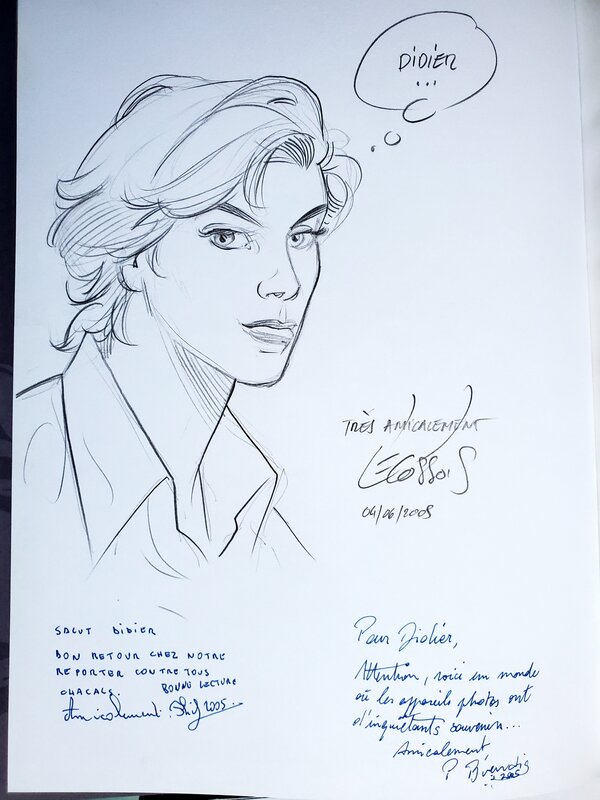 DIDIER
...
TRÈS AMICALEMENT
LEGOSSOIS
04/06/2005
SALUT DIDIER
BON RETOUR CHEZ NOTRE
REPORTER CONTRE TOUS
CHACALS. BONNE LECTURE
Amicalement. 2005.
Pour Didier,
Attention, voici un monde
où les appareils photos ont
d'inquiétants souvenirs...
Amicalement
P 2005